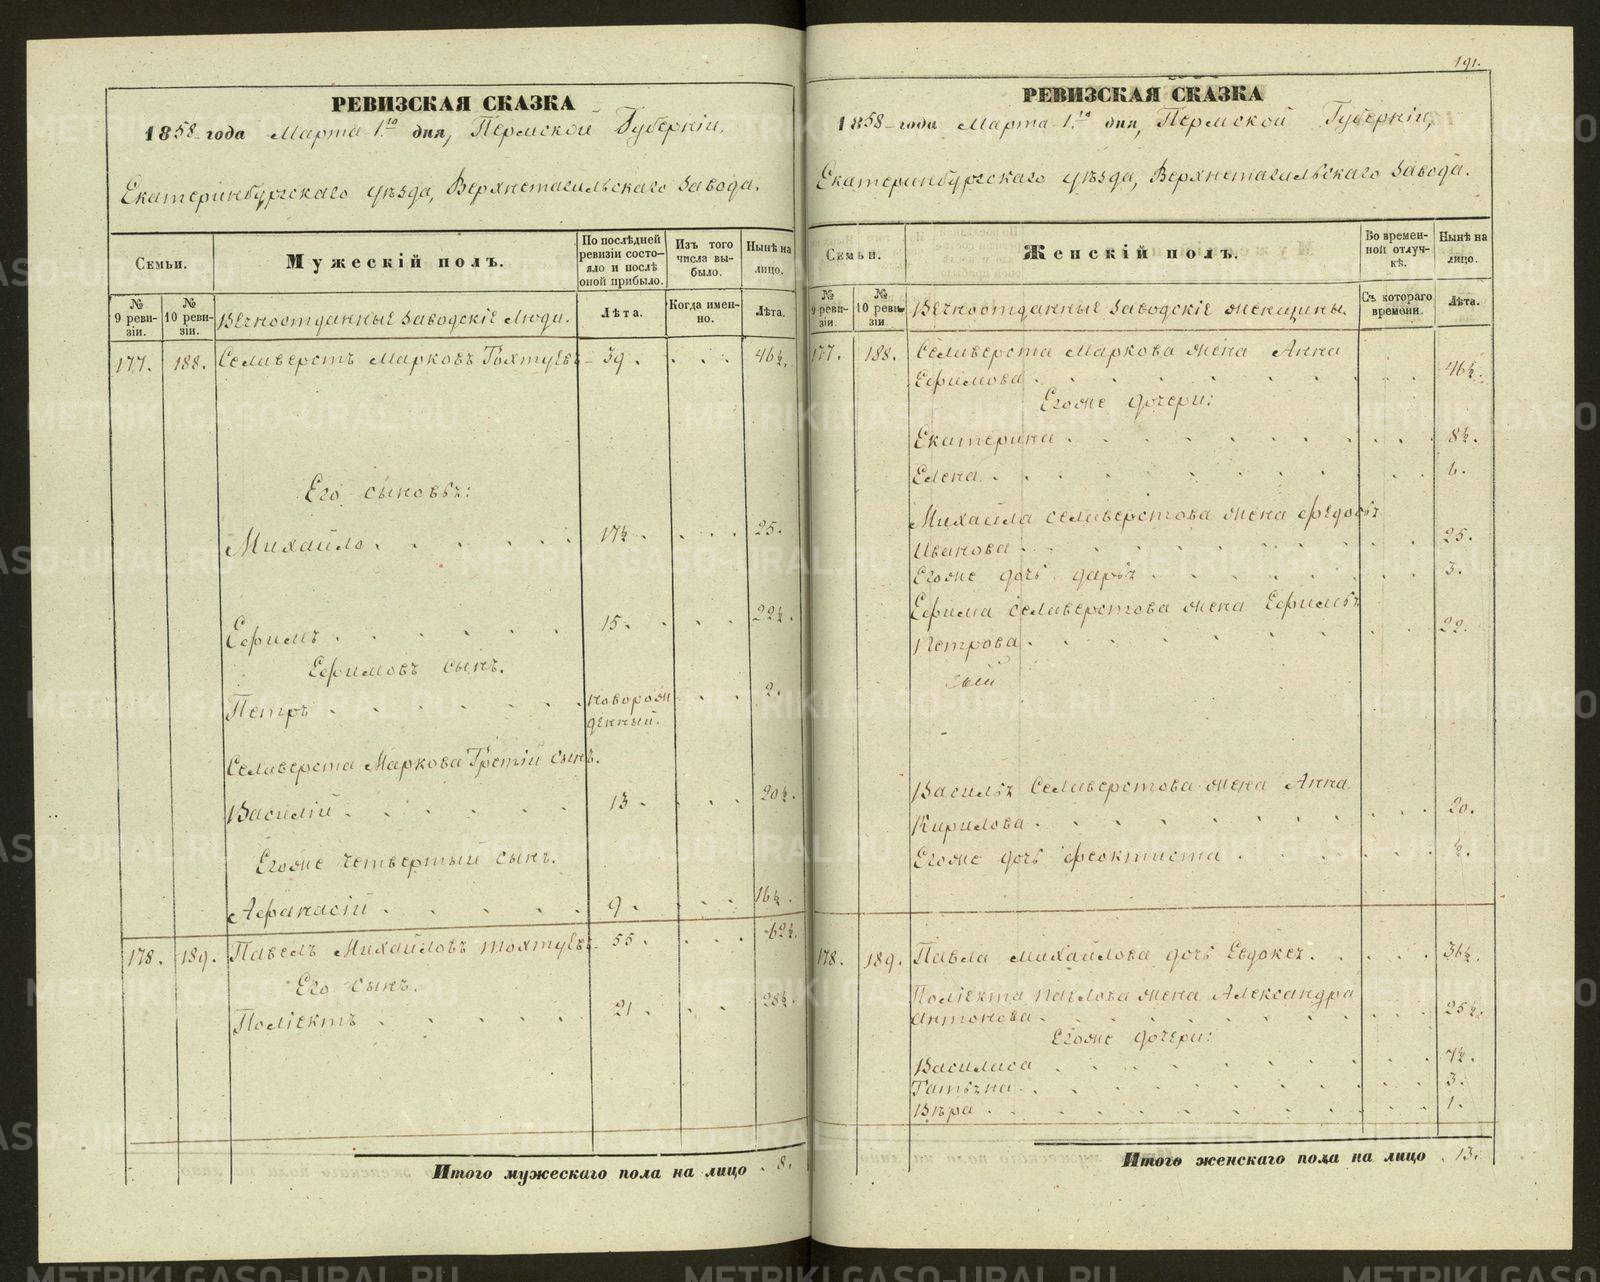 РЕВИЗСКАЯ СКАЗКА
1858 года Марта 1го дня, Пермской Губерніи,
Екатеринбургскаго уѣзда, Верхнетагильскаго Завода.
Семьи.
Мужескій полъ.
По послѣдней ревизіи состояло и послѣ оной прибыло.
Изъ того числа выбыло.
Нынѣ на лицо.
№ 9 ревизіи.
№ 10 ревизіи.
Вѣчноотданные Заводскіе Люди.
Лѣта.
Когда именно.
Лѣта.
177. 188. Селиверстъ Марковъ 39. 46½.
Его сыновья:
Михайло. 17½. 25.
Ефимъ. 15. 22½.
Ефимовъ сынъ.
Петръ. новорожденный. 2.
Селиверста Маркова Третій сынъ.
Василій. 13. 20½.
Егоже четвертый сынъ.
Афанасій. 9. 16½.
178. 189. Павелъ Михайловъ 55. 62½.
Его сынъ.
Поліектъ. 21. 28½.
Итого мужескаго пола на лицо 8.
191.
РЕВИЗСКАЯ СКАЗКА
1858 года Марта 1го дня, Пермской Губерніи,
Екатеринбургскаго уѣзда, Верхнетагильскаго Завода.
Семьи.
Женскій полъ.
Во временной отлучкѣ.
Нынѣ на лицо.
№ 9 ревизіи.
№ 10 ревизіи.
Вѣчноотданные Заводскіе женщины.
Съ котораго времени.
Лѣта.
177. 188. Селиверста Маркова жена Анна
Ефимова. 46½.
Егоже дочери:
Екатерина. 8½.
Елена. 6.
Михайла Селиверстова жена
Иванова. 25.
Егоже дочь Дарья. 3.
Ефима Селиверстова жена
Петрова. 22.
Василья Селиверстова жена Анна
Кирилова. 20.
Егоже дочь Феоктиста. ½.
178. 189. Павла Михайлова дочь 36½.
Поліекта Павлова жена Александра
Антонова. 25½.
Егоже дочери:
Василиса
Татьяна. 3.
Вѣра. 1.
Итого женскаго пола на лицо 13.
METRIKI.GASO-URAL.RU